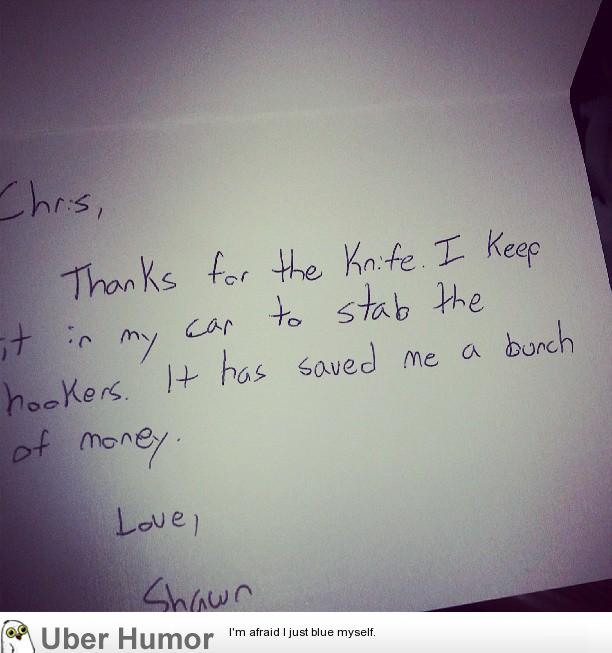 Chris,
Thanks for the Knife. I Keep
it in my car to stab the
hookers. It has saved me a bunch
of money.
Love,
Shawn
Uber Humor
I'm afraid I just blue myself.